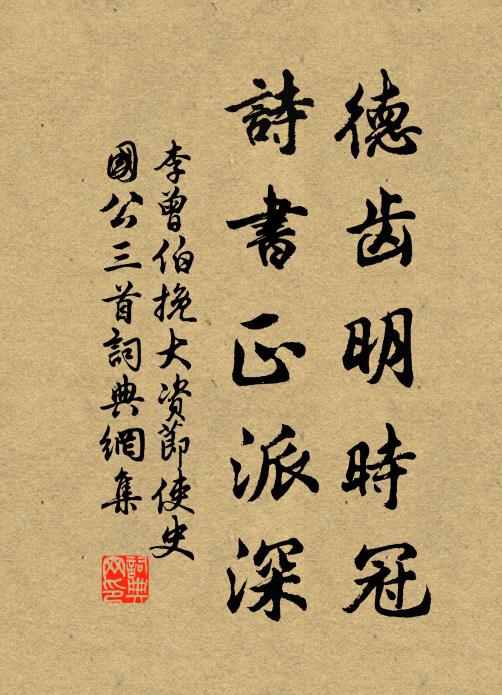 德齿明時冠
詩書正派深
李曾伯挽大资節使史
國公三首詞典網集
詞典網印